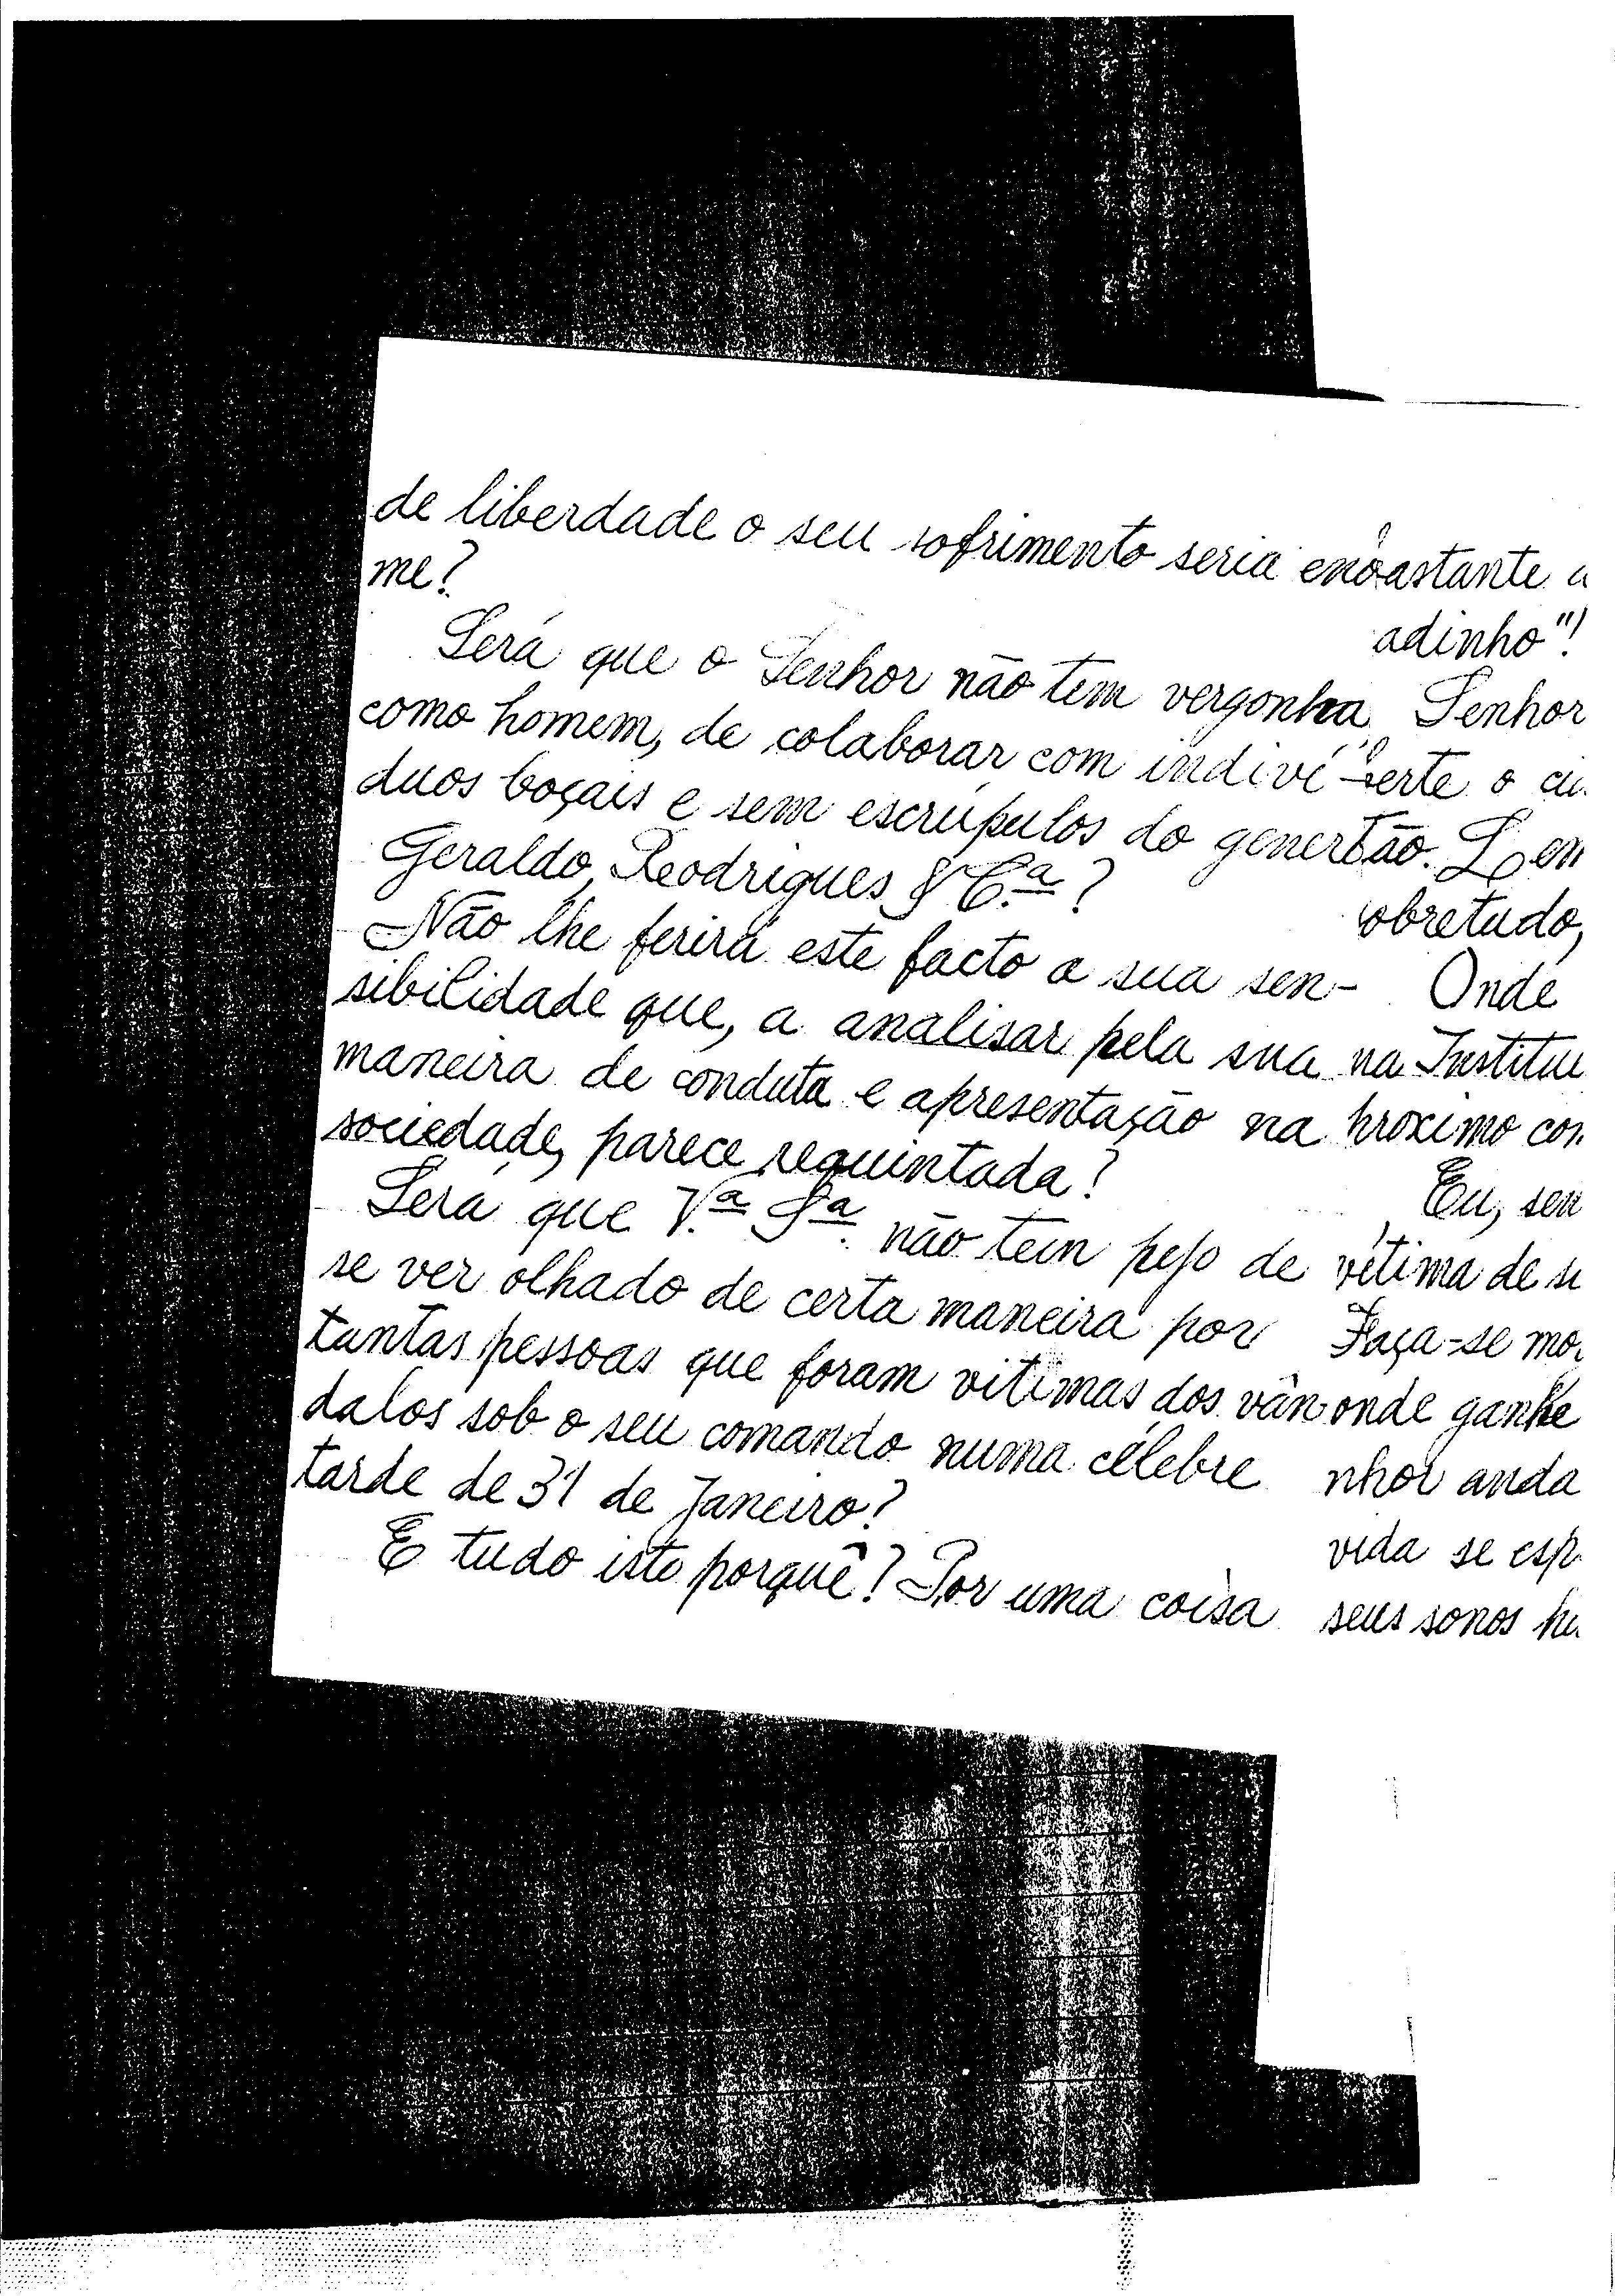 de liberdade o seu sofrimento seria enor
me?
Será que o Senhor não tem vergonha,
como homem, de colaborar com indiví-
duos boçais e sem escrúpulos do gener
Geraldo, Rodrigues & C.ª?
Não lhe ferirá este facto a sua sen-
sibilidade que, a analisar pela sua
maneira de conduta e apresentação na
sociedade, parece requintada?
Será que V.ª S.ª não tem pejo de
se ver olhado de certa maneira por
tantas pessoas que foram vitimas dos vân
dalos sob o seu comando numa célebre
tarde de 31 de Janeiro?
E tudo isto porquê? Por uma coisa
bastante
adinho"!
Senhor
erte o
tão.
obretudo,
Onde
na Institui
próximo con
Eu, sen
vítima de
Faça-se
onde ganhe
nhor anda
vida se esp
seus sonos